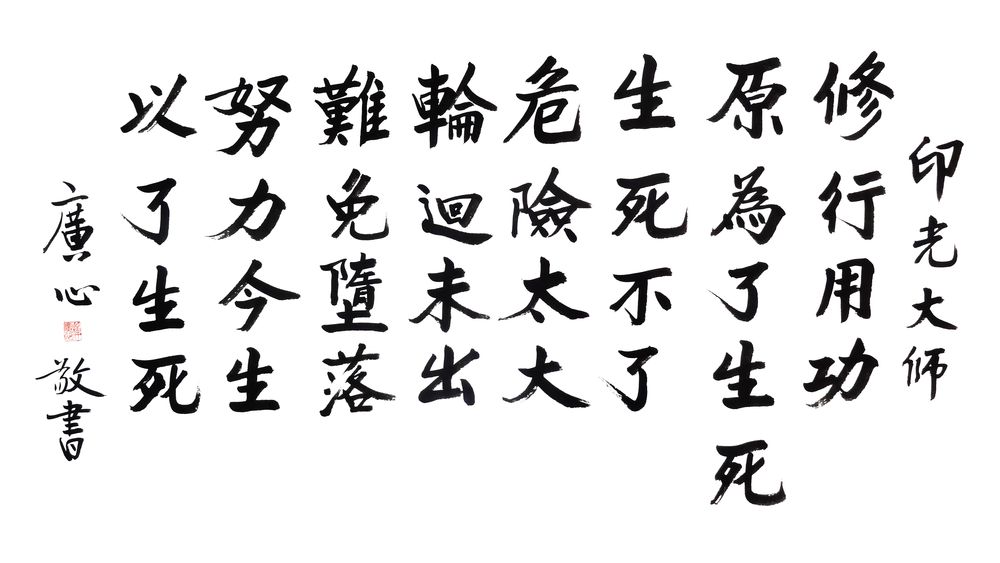 印光大师
修行用功
原為了生死
生死不了
危險太大
輪迴未出
難免墮落
努力今生
以了生死
廣心敬書